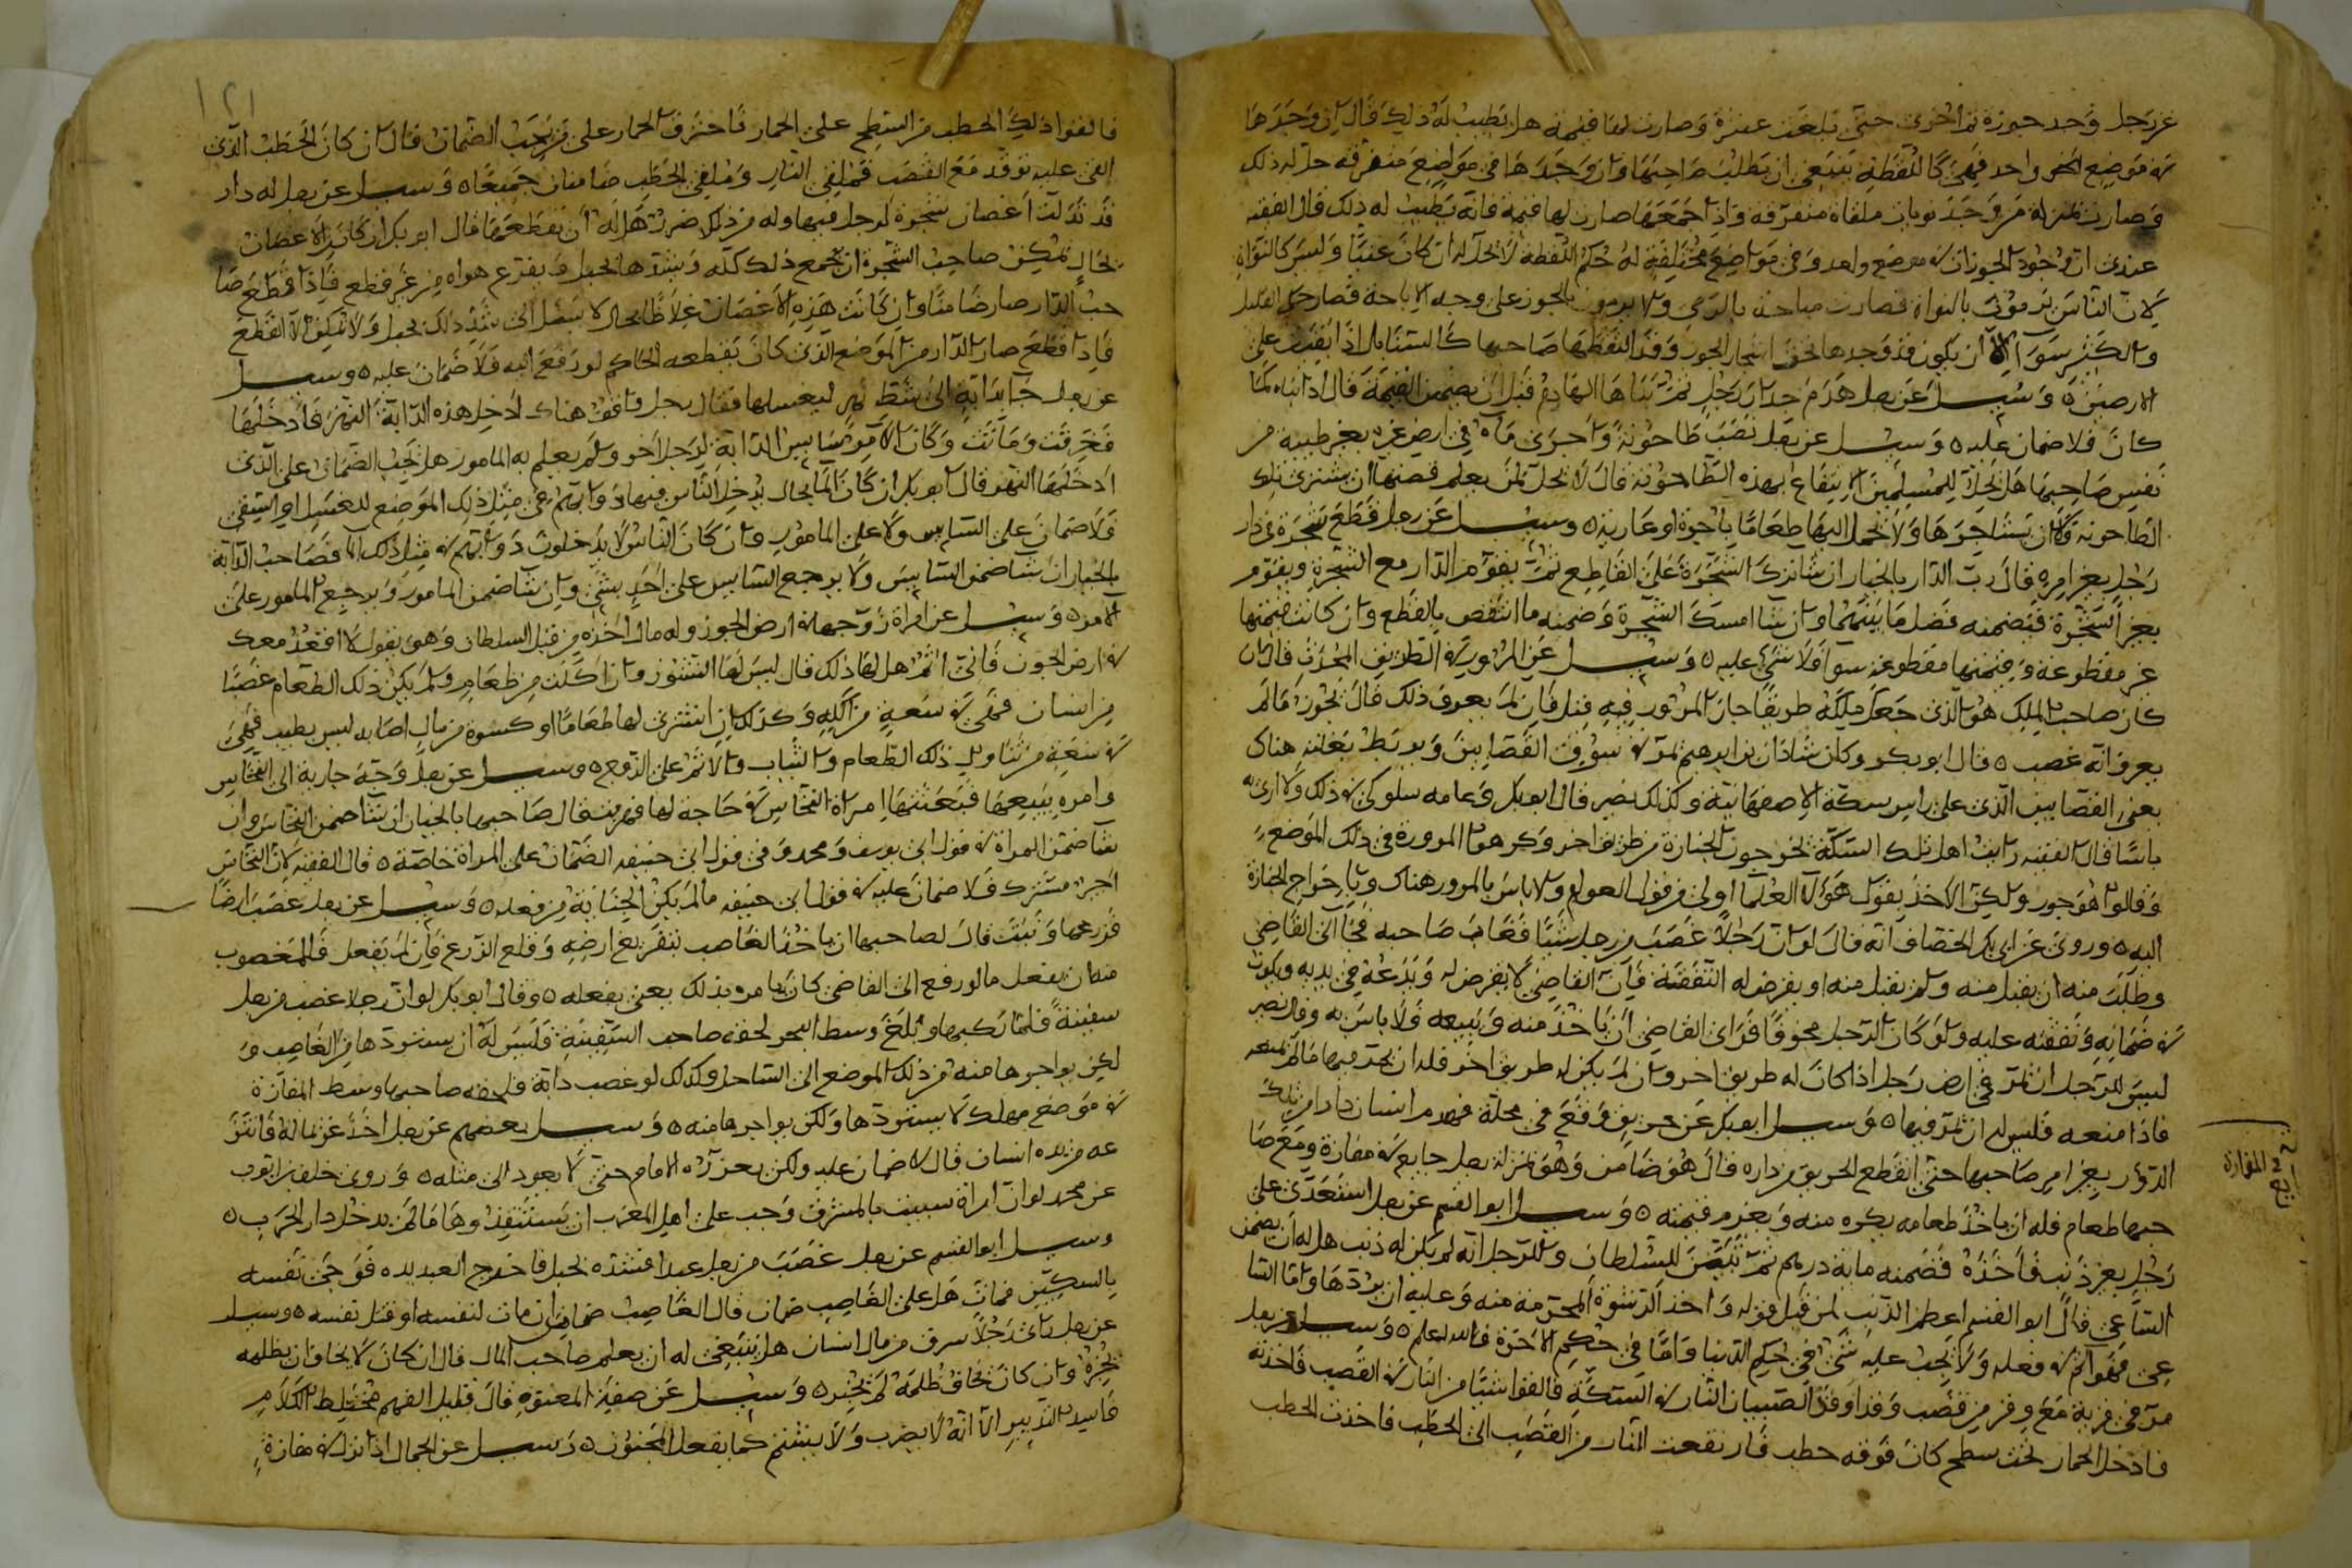 عن رجل وجد جوزة ثم اخرى حتى بلغت عشرة وصارت لها قيمة هل يطيب له ذلك قال ان وجدها
في موضع واحد فهي كاللقطة ينبغي ان يطلب صاحبها وان وجدها في مواضع متفرقة حل له ذلك
وصارت بمنزلة من وجد نويات ملقاة متفرقة واذا جمعها صارت لها قيمة فانه يطيب له ذلك قال الفقيه
عندي ان وجود الجوزات في موضع واحد وفي مواضع مختلفة له حكم اللقطة لا تحل له ان كان غنيا وليس كالنواة
لان الناس يرمون بالنواة فصارت مباحة بالرمي ولا يرمون بالجوز على وجه الاباحة فصار حكم القليل
والكثير سوا الا ان يكون قد وجدها تحت اشجار الجوز وقد التقطها صاحبها كالسنابل اذا بقيت على
الارضين وسيل عن رجل هدم جدار رجل ثم بناها الهادم قبل ان يضمن القيمة قال اذا بناه كما
كان فلا ضمان عليه وسيل عن رجل نصب طاحونة واجرى ماه في ارض غيره بغير طيبة من
نفس صاحبها هل يحل للمسلمين الانتفاع بهذه الطاحونة قال لا يحل لمن يعلم قصتها ان يشتري تلك
الطاحونة ولا ان يستاجرها ولا يحمل اليها طعاما باجرة او عارية وسيل عن رجل قطع شجرة في دار
رجل بغير امره قال رب الدار بالخيار ان شا ترك الشجرة على القاطع ثم يقوم الدار مع الشجرة ويقوم
بغير الشجرة فيضمنه فضل ما بينهما وان شا امسك الشجرة وضمنه ما انتقص بالقطع وان كانت قيمتها
غير مقطوعة وقيمتها مقطوعة سوا فلا شي عليه وسيل عن المرور في الطريق المحدث قال ان
كان صاحب الملك هو الذي جعل ملكه طريقا جاز المرور فيه قيل فان لم يعرف ذلك قال يجوز ما لم
يعرف انه غصب قال ابو بكر وكان شاذان بن ابرهيم يمر في سوق القصابين ويربط بغلته هناك
يعني القصابين الذي على راس سكة الاصفهانية وكذلك نصير قال ابو بكر وعامة سلوكي في ذلك ولا ارى به
باسا قال الفقيه رايت اهل تلك السكة يخرجون الجنازة من طريق اخر وكرهوا المرور في ذلك الموضع
وقالوا هو جور ولكن الاخذ بقول هولا العلما اولى من قول العوام ولا باس بالمرور هناك وباخراج الجنازة
اليه وروي عن ابي بكر الخصاف انه قال لو ان رجلا غصب من رجل شيا فغاب صاحبه فجا الى القاضي
وطلب منه ان يقبل منه ولم يقبل منه او يفرض له النفقة فان القاضي لا يفرض له ويدعه في يديه ويكون
في ضمانه ونفقته عليه ولو كان الرجل مخوفا فراى القاضي ان ياخذ منه ويبيعه فلا باس به وقال نصير
ليس للرجل ان يمر في ارض رجل اذا كان له طريق اخر وان لم يكن له طريق اخر فله ان يمر فيها ما لم يمنعه
فاذا منعه فليس له ان يمر فيها وسيل ابو بكر عن حريق وقع في محلة فهدم انسان دارا من تلك
الدور بغير امر صاحبها حتى انقطع الحريق من داره قال هو ضامن وهو بمنزلة رجل جايع في مفازة ومع صا
حبها طعام فله ان ياخذ طعامه بكره منه ويغرم قيمته وسيل ابو القسم عن رجل استعدى على
رجل بغير ذنب فاخذه فضمنه ماية درهم ثم تبين للسلطان وللرجل انه لم يكن له ذنب هل له ان يضمن
الساعي قال ابو القسم اعظم الذنب لمن قبل قوله واخذ الرشوة المحرمة منه وعليه ان يردها واما السا
عي فهو اثم في فعله ولا يجب عليه شي في حكم الدنيا واما في حكم الاخرة فالله اعلم وسيل عن رجل
مر في قرية مع وقر من قصب وقد اوقد الصبيان النار في السكة فالقوا شيا من النار في القصب فاخذته
فادخل الحمار تحت سطح كان فوقه حطب فارتفعت النار من القصب الى الحطب فاخذت الحطب
المفازة
١٢١
فالقوا ذلك الحطب من السطح على الحمار فاحترق الحمار على من يجب الضمان قال ان كان الحطب الذي
القي عليه توقد مع القصب فملقي النار وملقي الحطب ضامنان جميعا وسيل عن رجل له دار
قد تدلت اغصان شجرة لرجل فيها وله من ذلك ضرر هل له ان يقطعها قال ابو بكر ان كانت الاغصان
بحال يمكن صاحب الشجرة ان يجمع ذلك كله ويشدها بحبل ويفرغ هواه من غير قطع فاذا قطع صا
حب الدار صار ضامنا وان كانت هذه الاغصان غلاظا بحال لا سبيل الى شد ذلك بحبل ولا يمكن الا القطع
فاذا قطع صاحب الدار من الموضع الذي كان يقطعه الحاكم لو رفع اليه فلا ضمان عليه وسيل
عن رجل جا بدابة الى شط نهر ليغسلها فقال رجل واقف هناك ادخل هذه الدابة النهر فادخلها
فغرقت وماتت وكان الامر سايس الدابة لرجل اخر ولم يعلم به المامور هل يجب الضمان على الذي
ادخلها النهر قال ابو بكر ان كان الما بحال يدخل الناس فيها دوابهم في مثل ذلك الموضع للغسل او السقي
فلا ضمان على السايس ولا على المامور وان كان الناس لا يدخلون دوابهم في مثل ذلك الما فصاحب الدابة
بالخيار ان شا ضمن السايس ولا يرجع السايس على احد بشي وان شا ضمن المامور ويرجع المامور على
الامر وسيل عن امراة زوجها في ارض الجوز وله مال اخذه من قبل السلطان وهي تقول لا اقعد معك
في ارض الجوز فاني اثم هل لها ذلك قال ليس لها النشوز وان اكلت من طعام ولم يكن ذلك الطعام غصبا
من انسان فهي في سعة من اكله وكذلك ان اشترى لها طعاما او كسوة من مال اصابه ليس بطيب فهي
في سعة من تناول ذلك الطعام والثياب والاثم على الزوج وسيل عن رجل وجه جارية الى النخاس
وامره ببيعها فبعثتها امراة النخاس في حاجة لها فهربت قال صاحبها بالخيار ان شا ضمن النخاس وان
شا ضمن المراة في قول ابي يوسف ومحمد وفي قول ابي حنيفة الضمان على المراة خاصة قال الفقيه لان النخاس
اجير مشترك فلا ضمان عليه في قول ابي حنيفة ما لم يكن الجناية من فعله وسيل عن رجل غصب ارضا
فزرعها ونبتت قال لصاحبها ان ياخذ الغاصب بتفريغ ارضه وقلع الزرع فان لم يفعل فللمغصوب
منه ان يفعل ما لو رفع الى القاضي كان يامره بذلك يعني بفعله وقال ابو بكر لو ان رجلا غصب من رجل
سفينة فلما ركبها وبلغ وسط البحر لحقه صاحب السفينة فليس له ان يستردها من الغاصب و
لكن يواجرها منه من ذلك الموضع الى الساحل وكذلك لو غصب دابة فلحقه صاحبها وسط المفازة
في موضع مهلك لا يستردها ولكن يواجرها منه وسيل بعضهم عن رجل اخذ غريما له فانتز
عه من يده انسان قال لا ضمان عليه ولكن يعزره الامام حتى لا يعود الى مثله وروى خلف بن ايوب
عن محمد لو ان امراة سبيت بالمشرق وجب على اهل المغرب ان يستنقذوها ما لم يدخل دار الحرب
وسيل ابو القسم عن رجل غصب من رجل عبدا فشده بحبل فاخرج العبد يده فوجى نفسه
بالسكين فمات هل على الغاصب ضمان قال الغاصب ضامن ان مات لنفسه او قتل نفسه وسيل
عن رجل راى رجلا سرق من مال انسان هل ينبغي له ان يعلم صاحب المال قال ان كان لا يخاف ان يظلمه
يخبره وان كان يخاف ظلمه لم يخبره وسيل عن صفة المعتوه قال قليل الفهم مختلط الكلام
فاسد التدبير الا انه لا يضرب ولا يشتم كما يفعل المجنون وسيل عن الجمال اذا نزل في مفازة